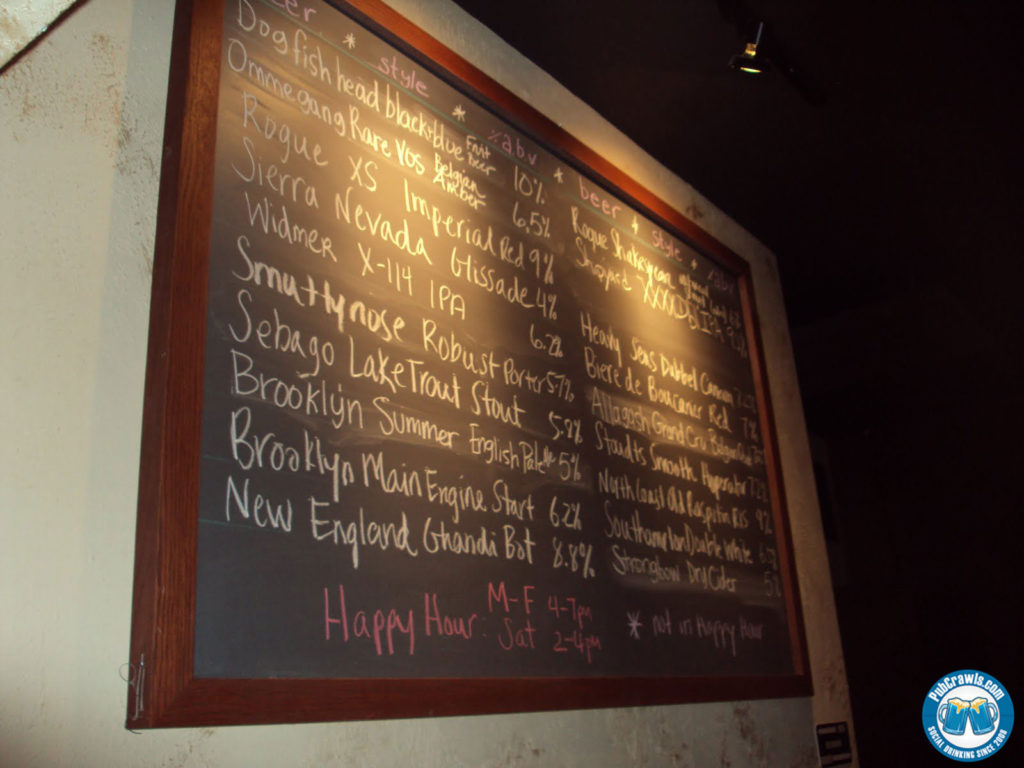 beer * style * %abv
Dogfish head black+blue Fruit Beer 10%
Ommegang Rare Vos Belgian Amber 6.5%
Rogue XS Imperial Red 9%
Sierra Nevada Glissade 4%
Widmer X-114 IPA 6.2%
Smuttynose Robust Porter 5.7%
Sebago Lake Trout Stout
Brooklyn Summer English Pale Ale 5%
Brooklyn Main Engine Start 6.2%
New England Ghandi Bot 8.8%
* beer * style * %abv
Rogue Shakespeare
Shipyard XXXX Dbl IPA
Heavy Seas Dubbel Cannon
Biere de Boucanier Red 7%
Allagash Grand Cru Belgian
Stoudts Smooth Hoperator
North Coast Old Rasputin RIS 9%
Southampton Double White
Strongbow Dry Cider 5%
Happy Hour: M-F 4-7pm
Sat 2-4pm
* not in Happy Hour
PubCrawls.com
SOCIAL DRINKING SINCE 2008